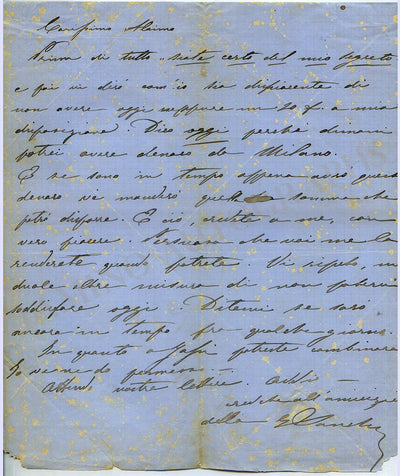 Carissimo Mº
Prima di tutto siate certo del mio segreto
e poi vi dirò com'io sia dispiacente di
non avere oggi neppure un 20 f. a mia
disposizione. Dico oggi perchè domani
potrei avere denaro da Milano.
E se sono in tempo appena avrò questo
denaro vi manderò quella somma che
potrò disporre. E ciò, credete a me, con
vero piacere. Persuaso che voi me la
renderete quando potrete. Vi ripeto, mi
duole oltre misura di non potervi
soddisfare oggi. Ditemi se sarò
ancora in tempo fra qualche giorno.
In quanto a potrete combinare
Io ve ne do permesso.
Attendo vostre lettere. Addio
credete all'amicizia
della